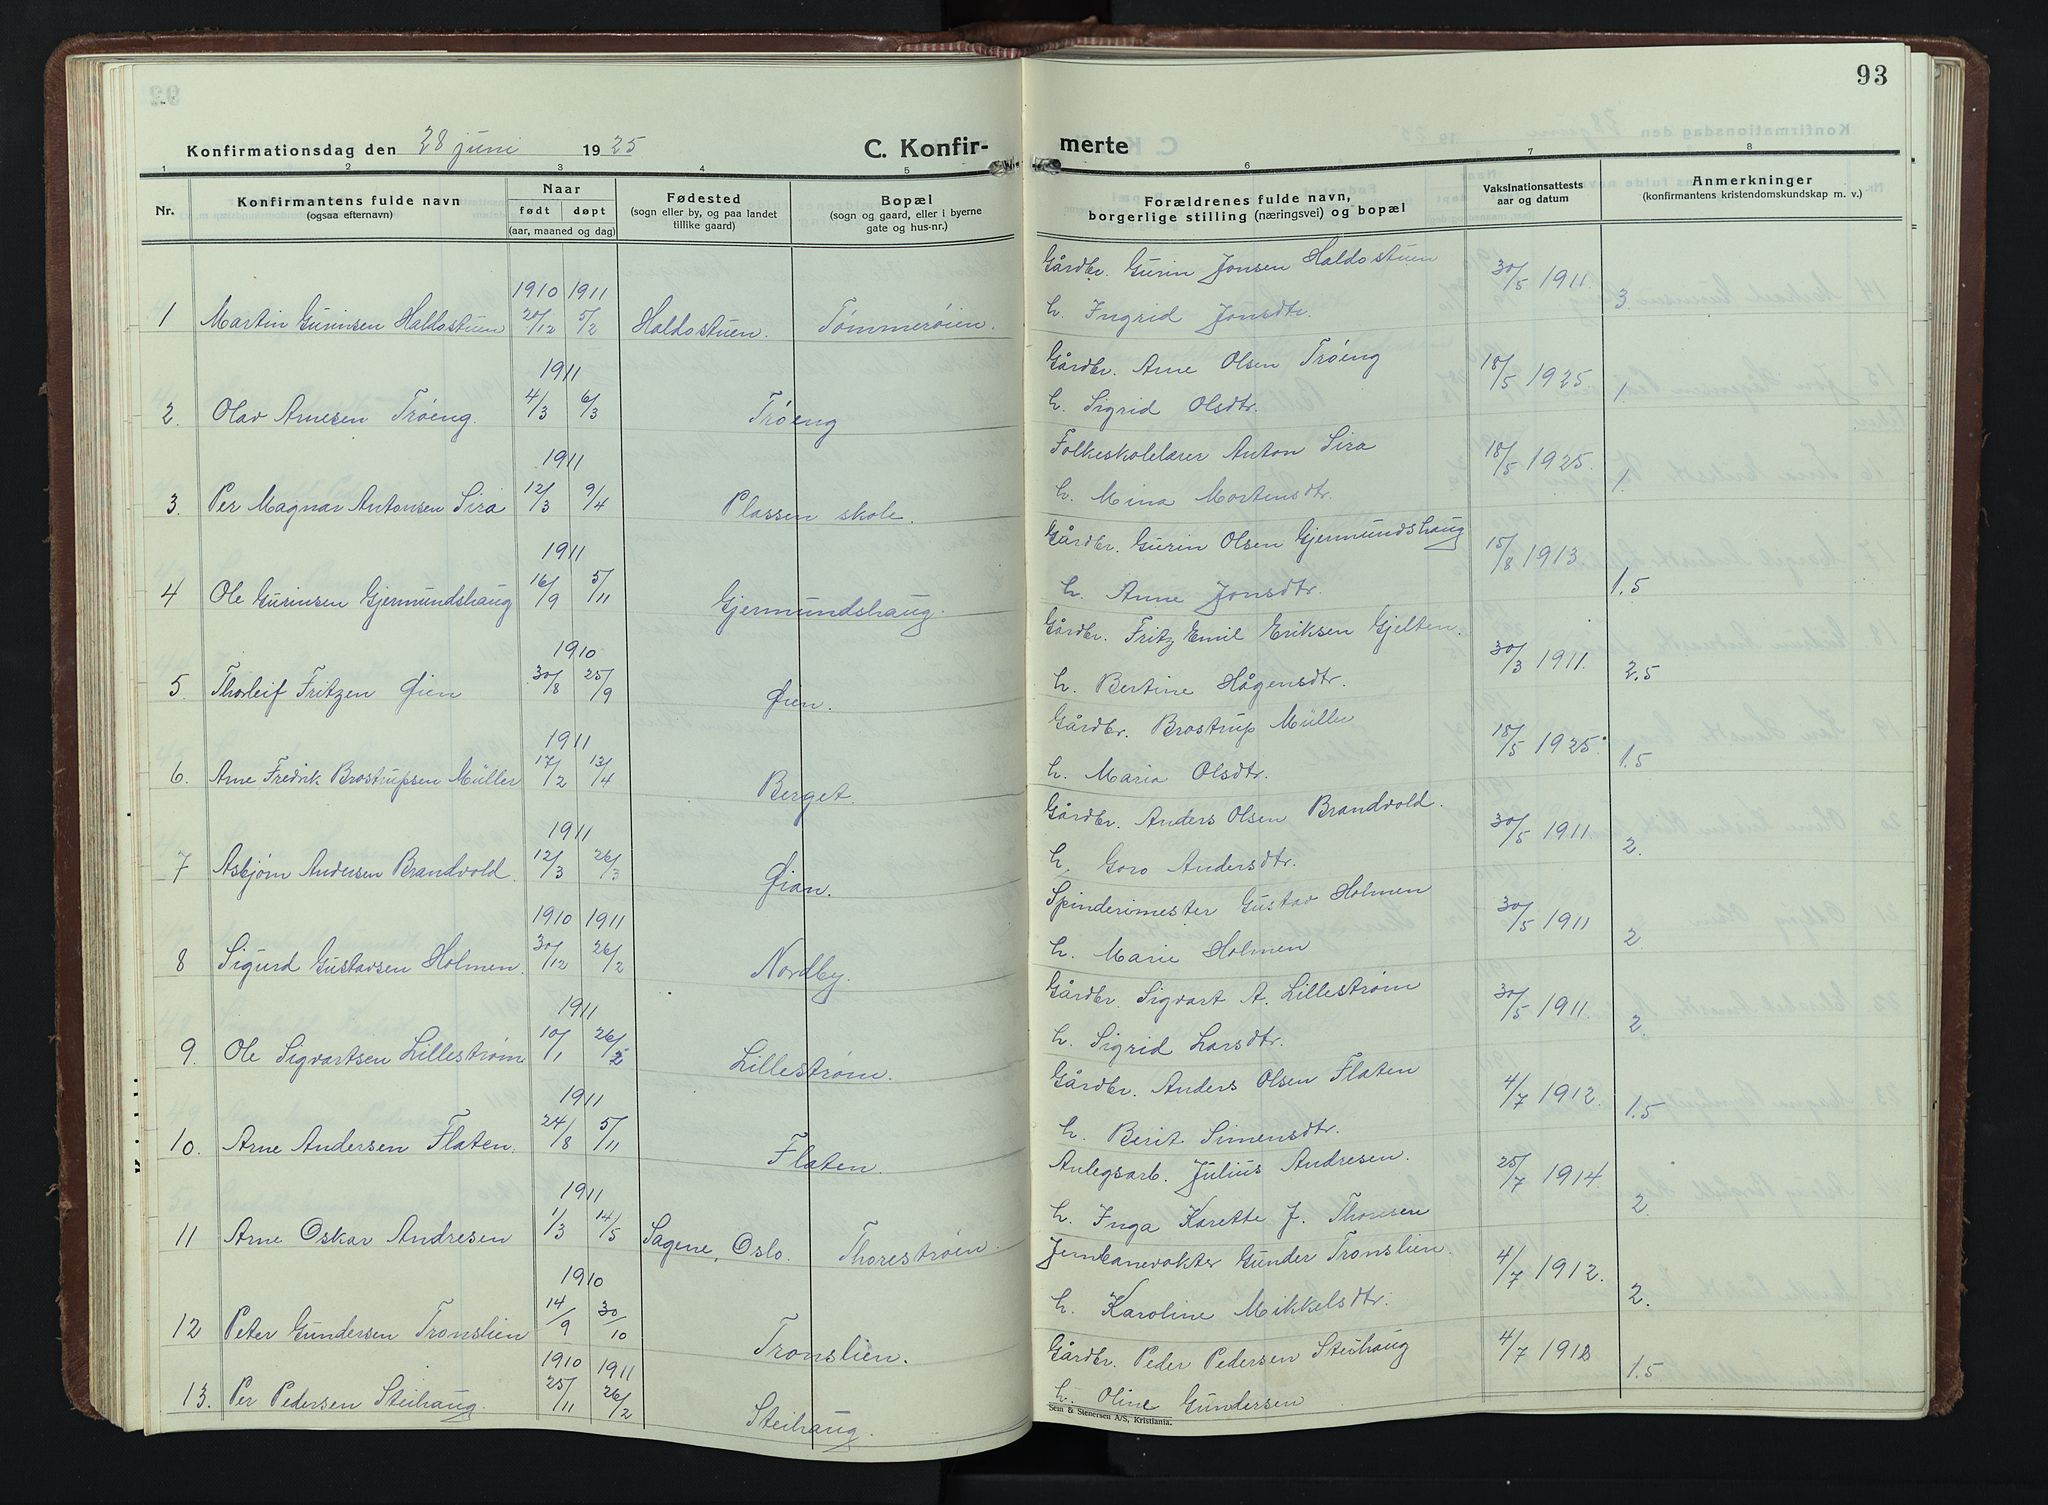 93
Konfirmationsdag den 28 juni 1925
C. Konfir-
merte
1 2 3 4 5 6 7 8
Nr.
Konfirmantens fulde navn
(ogsaa efternavn)
Naar
født døpt
(aar, maaned og dag)
Fødested
(sogn eller by, og paa landet
tillike gaard)
Bopæl
(sogn og gaard, eller i byerne
gate og hus-nr.)
Forældrenes fulde navn,
borgerlige stilling (næringsvei) og bopæl
Vaksinationsattests
aar og datum
Anmerkninger
(konfirmantens kristendomskundskap m. v.)
1910 1911
1 Martin Gurinsen Haldostuen 20/12 5/2 Haldostuen. Tømmerøien.
Gårdbr. Gurin Jonsen Haldostuen 30/5 1911.
h. Ingrid Jonsdtr. 3.
1911
2. Olav Arnesen Trøeng. 4/3 6/3 Trøeng
Gårdbr. Arne Olsen Trøeng 18/5 1925
h. Sigrid Olsdtr. 1.
1911
3. Per Magnar Antonsen Sira 12/3 9/4 Plassen skole.
Folkeskolelærer Anton Sira 18/5 1925.
h. Mina Mortensdtr. 1.
1911
4 Ole Gurinsen Gjermundshaug 16/9 5/11 Gjermundshaug.
Gårdbr. Gurin Olsen Gjermundshaug 15/8 1913.
h. Anne Jonsdtr. 1.5
1910
5. Thorleif Fritzen Øien 30/8 25/9 Øien.
Gårdbr. Fritz Emil Eriksen Gjelten. 30/3 1911.
h. Bertine Hågensdtr. 2.5
1911
6. Arne Fredrik Brostrupsen Müller 17/2 13/4 Berget.
Gårdbr. Brostrup Müller 18/5 1925.
h. Maria Olsdtr. 1.5
1911
7 Asbjørn Andersen Brandvold. 12/3 26/3 Øian.
Gårdbr. Anders Olsen Brandvold. 30/5 1911.
h. Goro Andersdtr. 2.
1910 1911
8 Sigurd Gustavsen Holmen. 30/12 26/2 Nordby.
Spinderimester Gustav Holmen 30/5 1911
h. Marie Holmen 2.
1911
9. Ole Sigvartsen Lillestrøm 10/1 26/2 Lillestrøm.
Gårdbr. Sigvart A. Lillestrøm 30/5 1911.
h. Sigrid Larsdtr. 2.
1911
10. Arne Andersen Flaten. 24/8 5/11 Flaten.
Gårdbr. Anders Olsen Flaten 4/7 1912.
h. Berit Simensdtr. 1.5
1911
11 Arne Oskar Andresen 1/3 14/5 Sagene, Oslo. Thorestrøen.
Anlegsarb. Julius Andresen. 25/7 1914.
h. Inga Karette J. Thomsen 2.
1910
12 Peter Gundersen Tronslien 14/9 30/10 Tronslien.
Jernbanevokter Gunder Tronslien. 4/7 1912.
h. Karoline Mikkelsdtr. 2.
1910 1911
13. Per Pedersen Steihaug. 25/11 26/2 Steihaug.
Gårdbr. Peder Pedersen Steihaug 4/7 1912
h. Oline Gundersen 1.5
Sem & Stenersen A/S, Kristiania.